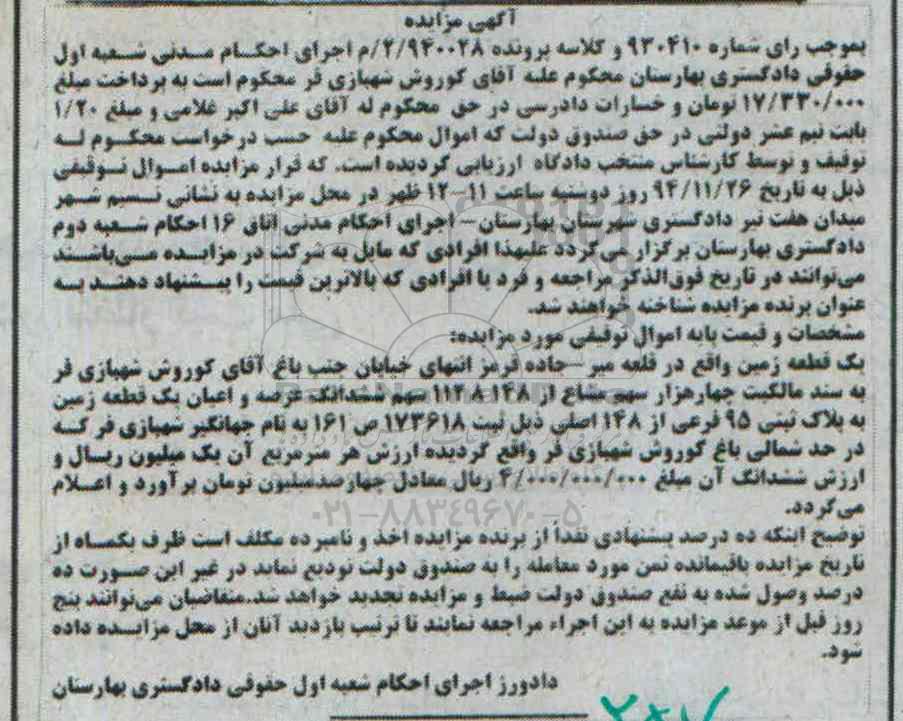 آگهی مزایده
بموجب رای شماره ۹۳۰۴۱۰ و کلاسه پرونده ۲/۹۴۰۰۲۸/م اجرای احکام مدنی شعبه اول
حقوقی دادگستری بهارستان محکوم علیه آقای کوروش شهبازی فر محکوم است به پرداخت مبلغ
۱۷/۳۳۰/۰۰۰ تومان و خسارات دادرسی در حق محکوم له آقای علی اکبر غلامی و مبلغ ۱/۲۰
بابت نیم عشر دولتی در حق صندوق دولت که اموال محکوم علیه حسب درخواست محکوم له
توقیف و توسط کارشناس منتخب دادگاه ارزیابی گردیده است. که قرار مزایده اموال توقیفی
ذیل به تاریخ ۹۴/۱۱/۲۶ روز دوشنبه ساعت ۱۱-۱۲ ظهر در محل مزایده به نشانی نسیم شهر
میدان هفت تیر دادگستری شهرستان بهارستان- اجرای احکام مدنی اتاق ۱۶ احکام شعبه دوم
دادگستری بهارستان برگزار می‌گردد علیهذا افرادی که مایل به شرکت در مزایده می‌باشند
می‌توانند در تاریخ فوق‌الذکر مراجعه و فرد یا افرادی که بالاترین قیمت را پیشنهاد دهند به
عنوان برنده مزایده شناخته خواهند شد.
مشخصات و قیمت پایه اموال توقیفی مورد مزایده:
یک قطعه زمین واقع در قلعه میر-جاده قرمز انتهای خیابان جنب باغ آقای کوروش شهبازی فر
به سند مالکیت چهارهزار سهم مشاع از ۱۱۲۸۰۱۴۸ سهم ششدانگ عرصه و اعیان یک قطعه زمین
به پلاک ثبتی ۹۵ فرعی از ۱۴۸ اصلی ذیل ثبت ۱۷۳۶۱۸ ص ۱۶۱ به نام جهانگیر شهبازی فر که
در حد شمالی باغ کوروش شهبازی فر واقع گردیده ارزش هر مترمربع آن یک میلیون ریسال و
ارزش ششدانگ آن مبلغ ۴/۰۰۰/۰۰۰/۰۰۰ ریال معادل چهارصدمیلیون تومان برآورد و اعلام
می‌گردد.
۰۲۱-۸۸۳۴۹۶۷۰-۵
توضیح اینکه ده درصد پیشنهادی نقداً از برنده مزایده اخذ و نامبرده مکلف است ظرف یکماه از
تاریخ مزایده باقیمانده ثمن مورد معامله را به صندوق دولت تودیع نماید در غیر این صورت ده
درصد وصول شده به نفع صندوق دولت ضبط و مزایده تجدید خواهد شد.متقاضیان می‌توانند پنج
روز قبل از موعد مزایده به این اجراء مراجعه نمایند تا ترتیب بازدید آنان از محل مزایده داده
شود.
دادورز اجرای احکام شعبه اول حقوقی دادگستری بهارستان